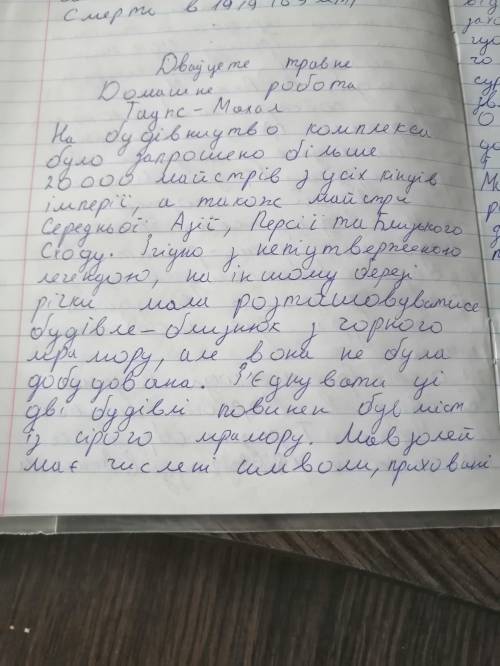 Смерть в 1919 (69 літ)
Двадцяте травне
Домашне робота
Тадпс-Махал
На будівництво комплекса
було запрошено більше
20000 майстрів з усіх кінців
імперії, а також майстри
Середньої Азії, Персії та Близького
Сходу. Згідно з непідтвердженою
легендою, на іншому березі
річки мала розташовуватисе
будівле-близнюк з чорного
мрамору, але вона не була
добудована. З'єднувати ці
дві будівлі повинен був міст
із сірого мрамору. Мавзолей
має числені символи, приховані